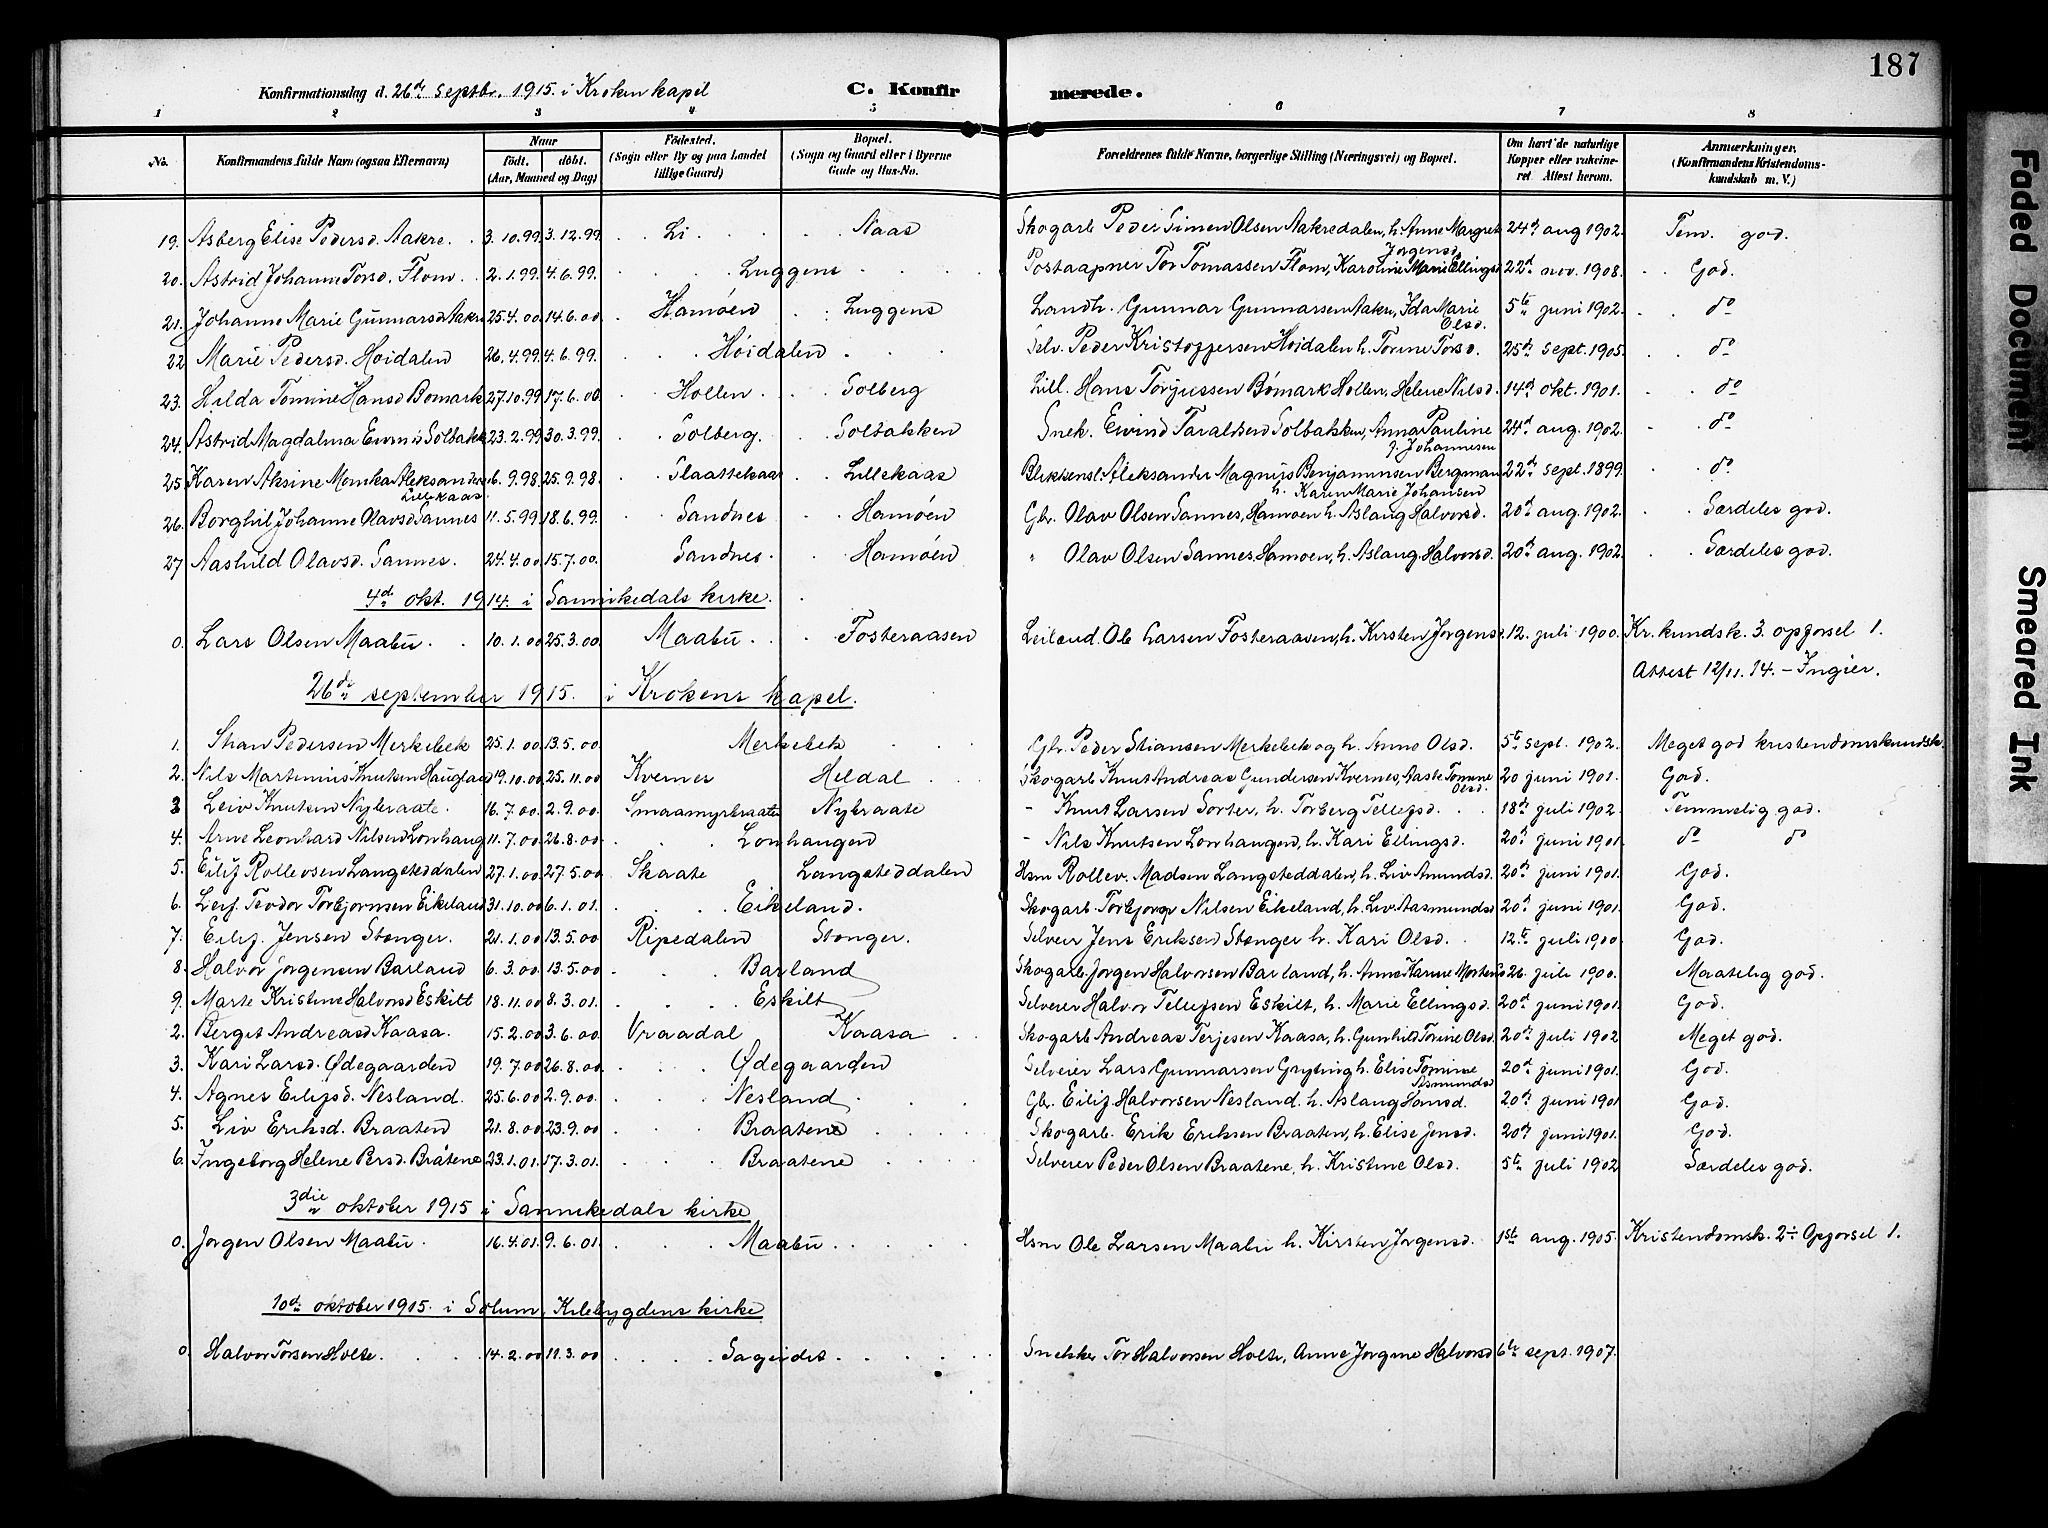 187
Konfirmationsdag d. 26de septbr. 1915 i Kroken kapel C. Konfirmerede.
1 2 3 4 5 6 7 8
No. Konfirmandens fulde Navn (ogsaa Efternavn) Naar født. døbt. (Aar, Maaned og Dag) Fødested. (Sogn eller By og paa Landet tillige Gaard) Bopæl. (Sogn og Gaard eller i Byerne Gade og Hus-No. Forældrenes fulde Navne, borgerlige Stilling (Næringsvei) og Bopæl. Om havt de naturlige Kopper eller vaccineret Attest herom. Anmærkninger. (Konfirmandens Kristendomskundskab m. V.)
19. Asberg Elise Pedersd. Aakre. 3.10.99. 3.12.99. Li Naas Skogarb. Peder Simen Olsen Aakredalen, h. Anne Margret Jørgensd. 24de aug 1902. Tem. god.
20. Astrid Johanne Torsd. Flom. 2.1.99. 4.6.99. Luggens Postaapner Tor Tomassen Flom, Karoline Marie Ellingsd. 22de nov. 1908. God.
21. Johanne Marie Gunnarsd Aakre 25.4.00. 14.6.00. Hamøen Luggens Landh. Gunnar Gunnarssen Aakre, Ida Marie Olsd. 5te juni 1902. do
22 Marie Pedersd. Høidalen 26.4.99. 4.6.99. Høidalen Selv. Peder Kristoffersen Høidalen h. Tomine Torsd. 25de sept. 1905. do
23. Hilda Tomine Hansd Bømark 27.10.99. 17.6.00. Hollen Solberg Lill. Hans Torjussen Bømark Hollen, Helene Nilsd. 14de okt. 1901. do
24. Astrid Magdalena Eivinds Solbakke 23.2.99. 30.3.99. Solberg. Solbakken Snek. Eivind Taraldsen Solbakken, Anna Pauline f. Johannesen 24de aug. 1902. do
25. Karen Aksine Monika Aleksanders Lillekaas. 6.9.98. 25.9.98. Slaattekaas Lillekaas Aleksander Magnus Benjaminsen Bergman h. Karen Marie Johansen 22de sept. 1899. do
26. Borghil Johanne Olavsd Sannes 11.5.99. 18.6.99. Sandnes Hamøen Gbr. Olav Olsen Sannes, Hamøen h. Aslaug Halvorsd. 20de aug. 1902. Særdeles god.
27 Aashild Olavsd. Sannes. 24.4.00. 15.7.00. Sandnes. Hamøen " Olav Olsen Sannes, Hamøen, h. Aslaug Halvorsd. 20de aug. 1902. Særdeles god.
4de okt. 1914. i Sannikedals kirke.
0. Lars Olsen Maabu. 10.1.00. 25.3.00. Maabu Fosteraasen Leiland. Ole Larsen Fosteraasen, h. Kirsten Jørgens. 12. juli 1900. Kr. kundsk. 3. opførsel 1.
Attest 12/11.14. – Ingier.
26de september 1915. i Krokens kapel.
1. Stian Pedersen Merkebek 25.1.00. 13.5.00. Merkebek Gbr. Peder Stiansen Merkebek og h. Anne Olsd. 5te sept. 1902. Meget god kristendomskundsk.
2. Nils Martinius Knutsen Haugland 19.10.00. 25.11.00 Kvernes Heldal Skogarb Knut Andreas Gundersen Kvernes, Aaste Tomine Olsd. 20 juni 1901. God.
3 Leiv Knutsen Nybraate. 16.7.00. 2.9.00. Smaamyrbraaten Nybraate - Knut Larsen Sorter, h. Torberg Tellefsd. 18de juli 1902. Temmelig god.
4. Arne Leonhard Nilsen Lønhaug 11.7.00. 26.8.00. Lønhaugen - Nils Knutsen Lønhaugen, h. Kari Ellingsd. 20de juni 1901. do do
5. Eilif Rollevsen Langsteddalen 27.1.00. 27.5.00 Skaate Langsteddalen Hsm Rollev. Madsen Langsteddalen, h. Liv Amundsd. 20de juni 1901. God.
6. Leif Teodor Torbjørnsen Eikeland 31.10.00 6.1.01. Eikeland. Skogarb. Torbjørn Nilsen Eikeland, h. Liv Aasmundsd 20de juni 1901. God.
7. Eilif. Jensen Stenger. 21.1.00. 13.5.00 Ripedalen Stenger. Selveier Jens Eriksen Stenger h. Kari Olsd. 12te juli 1900. God.
8. Halvor Jørgensen Barland 6.3.00. 13.5.00 Barland Skogarb. Jørgen Halvorsen Barland, h. Anne Karine Mortens 26. juli 1900. Maatelig god.
9. Marte Kristine Halvorsd Eskilt 18.11.00 8.3.01. Eskilt Selveier Halvor Tellefsen Eskilt, h. Marie Ellingsd. 20de juni 1901. God.
2. Berget Andreasd Kaasa. 15.2.00 3.6.00 Vraadal Kaasa Skogarb Andreas Terjesen Kaasa, h. Gunhild Tomine Olsd. 20de juli 1902 Meget god.
3. Kari Larsd. Ødegaarden 19.7.00 26.8.00 Ødegaarden Selveier Lars Gunnarsen Gryting h. Elise Tomine Asmundsd 20de juni 1901. God.
4. Agnes Eilifsd. Nesland. 25.6.00 2.9.00. Nesland Gbr. Eilif Halvorsen Nesland. h. Aslaug Hansd. 20de juni 1901 God.
5. Liv Eriksd. Braaten 21.8.00 23.9.00 Braatene Skogarb. Erik Eriksen Braaten, h. Elise Jensd. 20de juni 1901. God.
6. Ingeborg Helene Persd. Bråtene 23.1.01. 17.3.01. Braatene Selveier Peder Olsen Braatene, h. Kristine Olsd. 5te juli 1902 Særdeles god.
3die oktober 1915 i Sannikedals kirke
0. Jørgen Olsen Maabu. 16.4.01. 9.6.01. Maabu Hsm Ole Larsen Maabu h. Kirsten Jørgensd. 1ste aug. 1905. Kristendomsk. 2÷ Opførsel 1.
10de oktober 1915. i Solum, Kilebygdens kirke
0. Halvor Torsen Holte. 14.2.00 11.3.00 Sagendet Snekker Tor Halvorsen Holte, Anne Jørgine Halvorsd 6te sept. 1907.
Faded Document
Smeared Ink